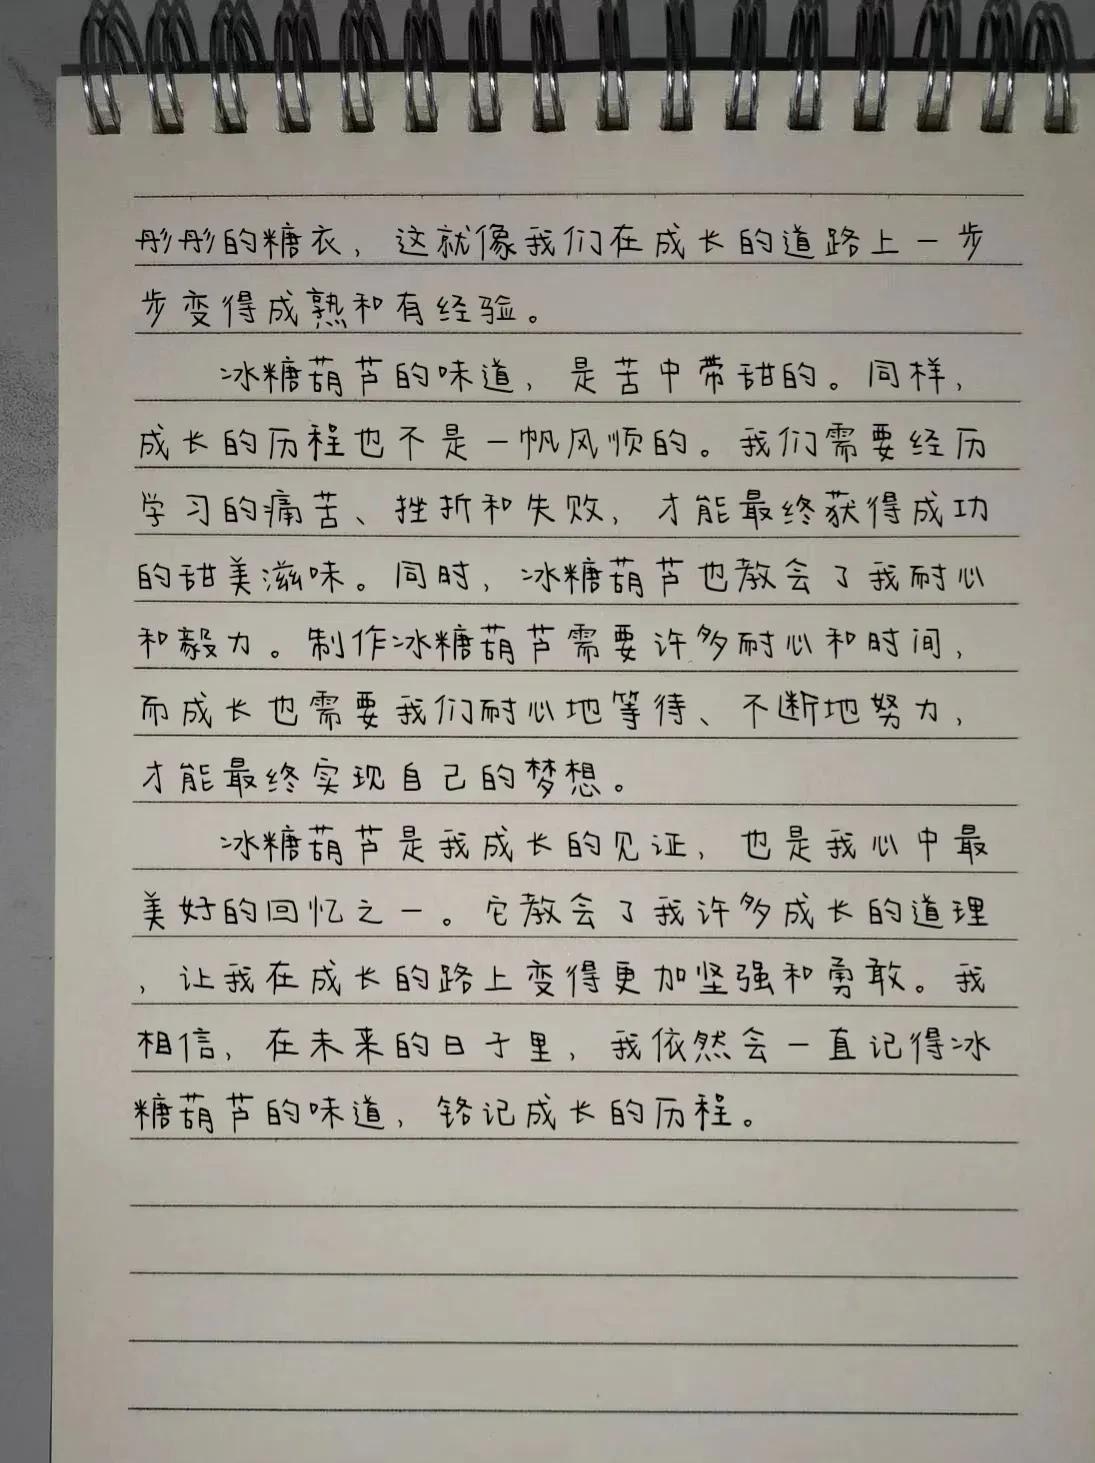 彤彤的糖衣，这就像我们在成长的道路上一步
步变得成熟和有经验。
冰糖葫芦的味道，是苦中带甜的。同样，
成长的历程也不是一帆风顺的。我们需要经历
学习的痛苦、挫折和失败，才能最终获得成功
的甜美滋味。同时，冰糖葫芦也教会了我耐心
和毅力。制作冰糖葫芦需要许多耐心和时间，
而成长也需要我们耐心地等待、不断地努力，
才能最终实现自己的梦想。
冰糖葫芦是我成长的见证，也是我心中最
美好的回忆之一。它教会了我许多成长的道理
，让我在成长的路上变得更加坚强和勇敢。我
相信，在未来的日子里，我依然会一直记得冰
糖葫芦的味道，铭记成长的历程。